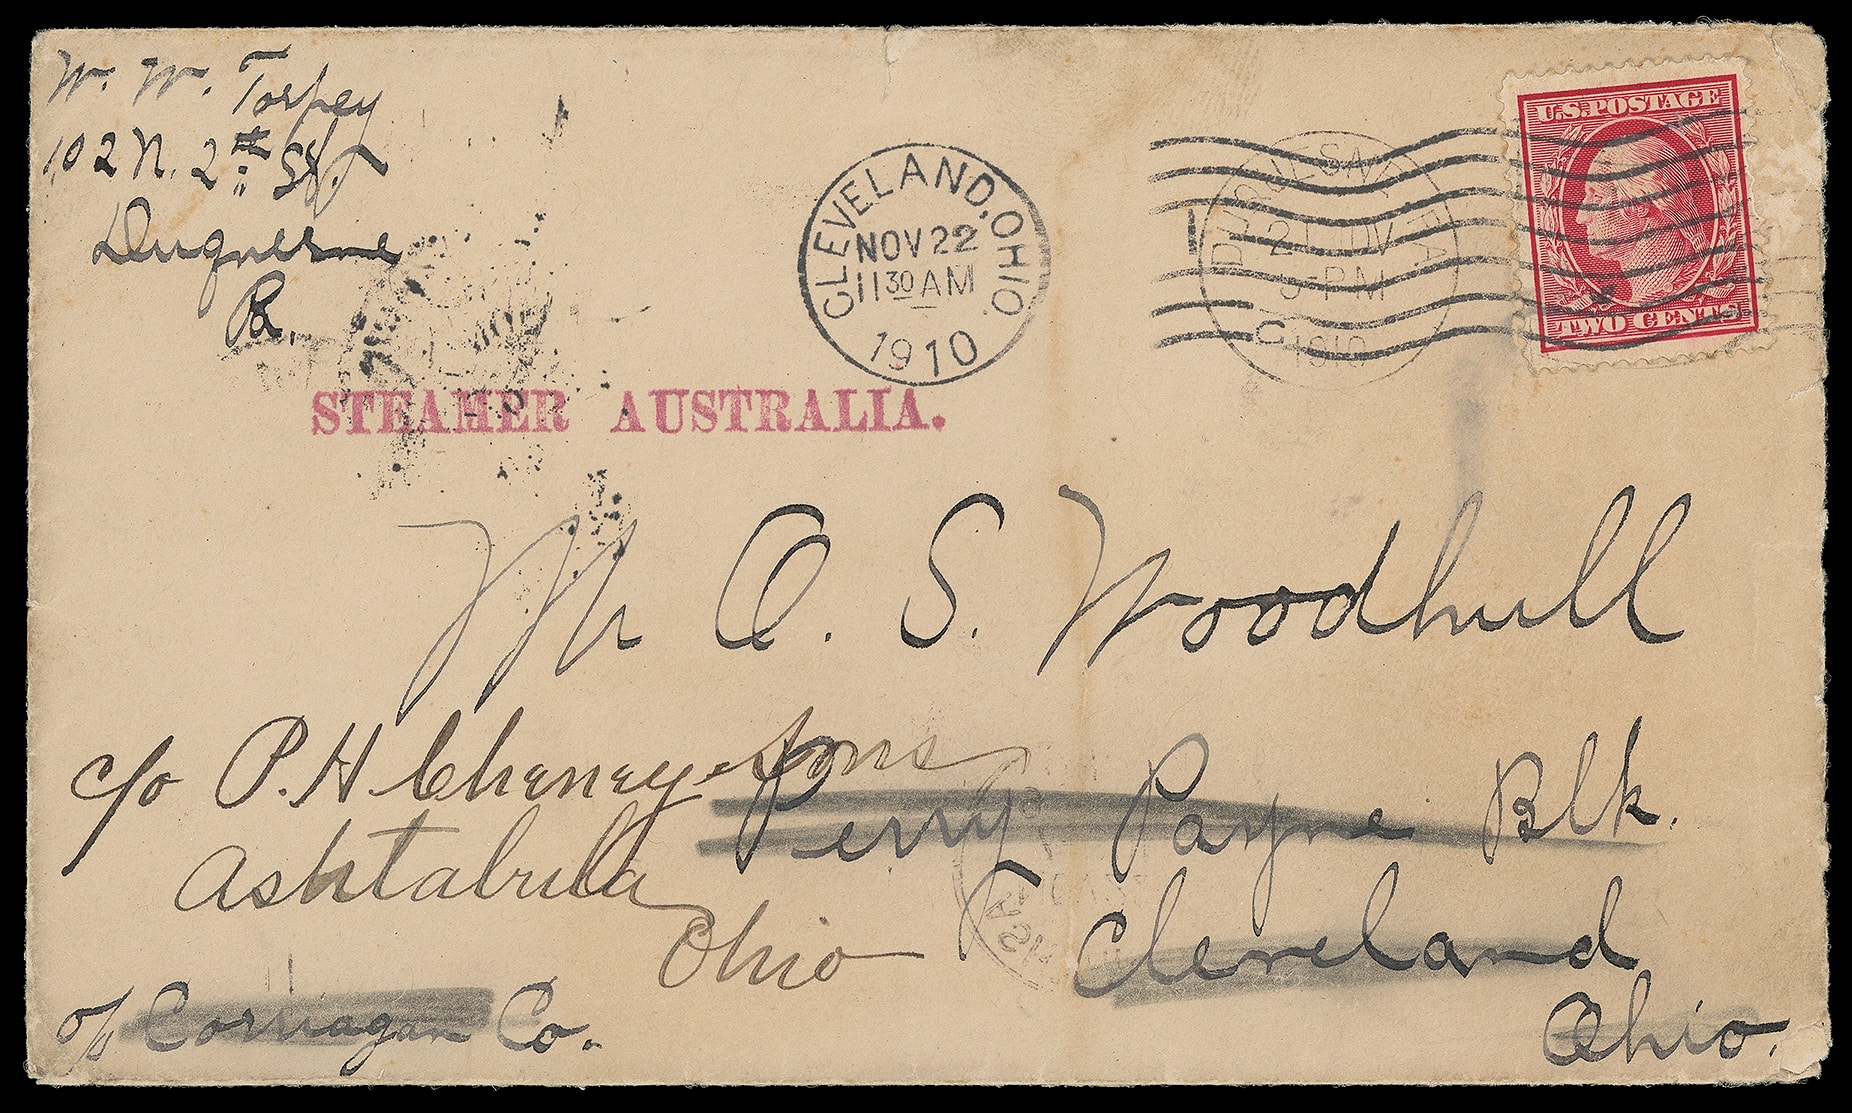 W. W. Torpey
102 N. 2nd St.
Duquesne
Pa.
CLEVELAND, OHIO.
NOV 22
11 30 AM
1910
DUQUESNE PA
21 NOV
5-PM
1910
U.S. POSTAGE
TWO CENTS
STEAMER AUSTRALIA.
Mr O. S. Woodhull
c/o P. H Cheney & Sons
Perry Payne Blk.
Ashtabula
Ohio
Cleveland
Ohio.
c/o Corriagan Co.